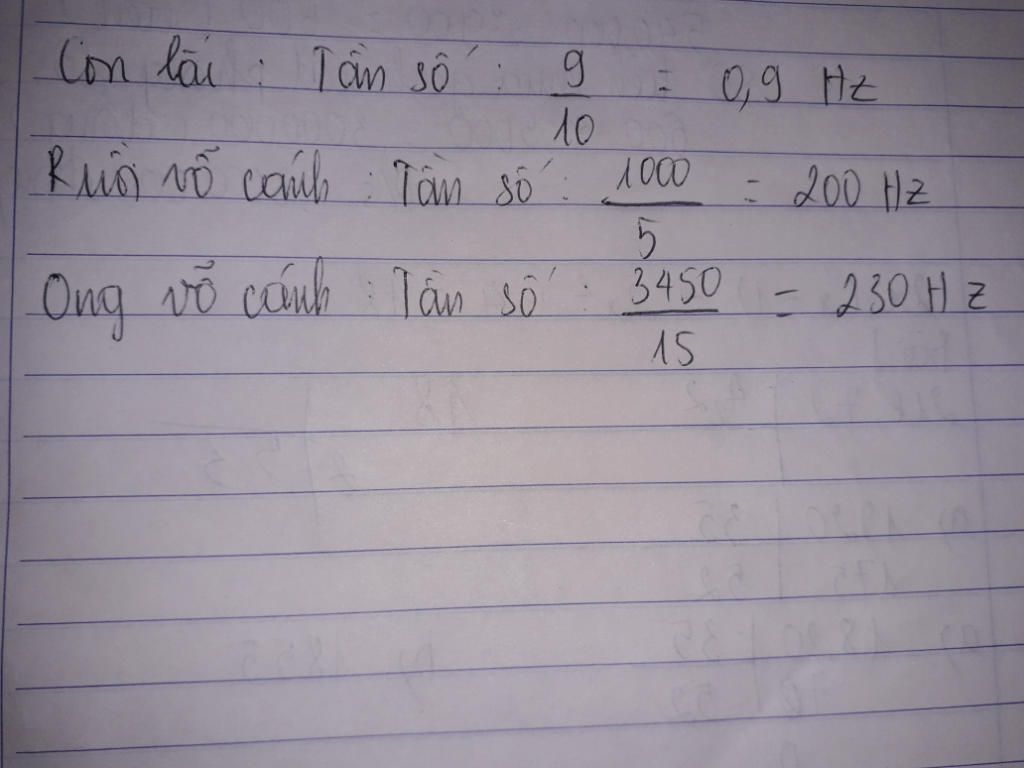 Con lắc : Tần số : 9/10 = 0,9 Hz
Ruồi vỗ cánh : Tần số : 1000/5 = 200 Hz
Ong vỗ cánh : Tần số : 3450/15 = 230 Hz